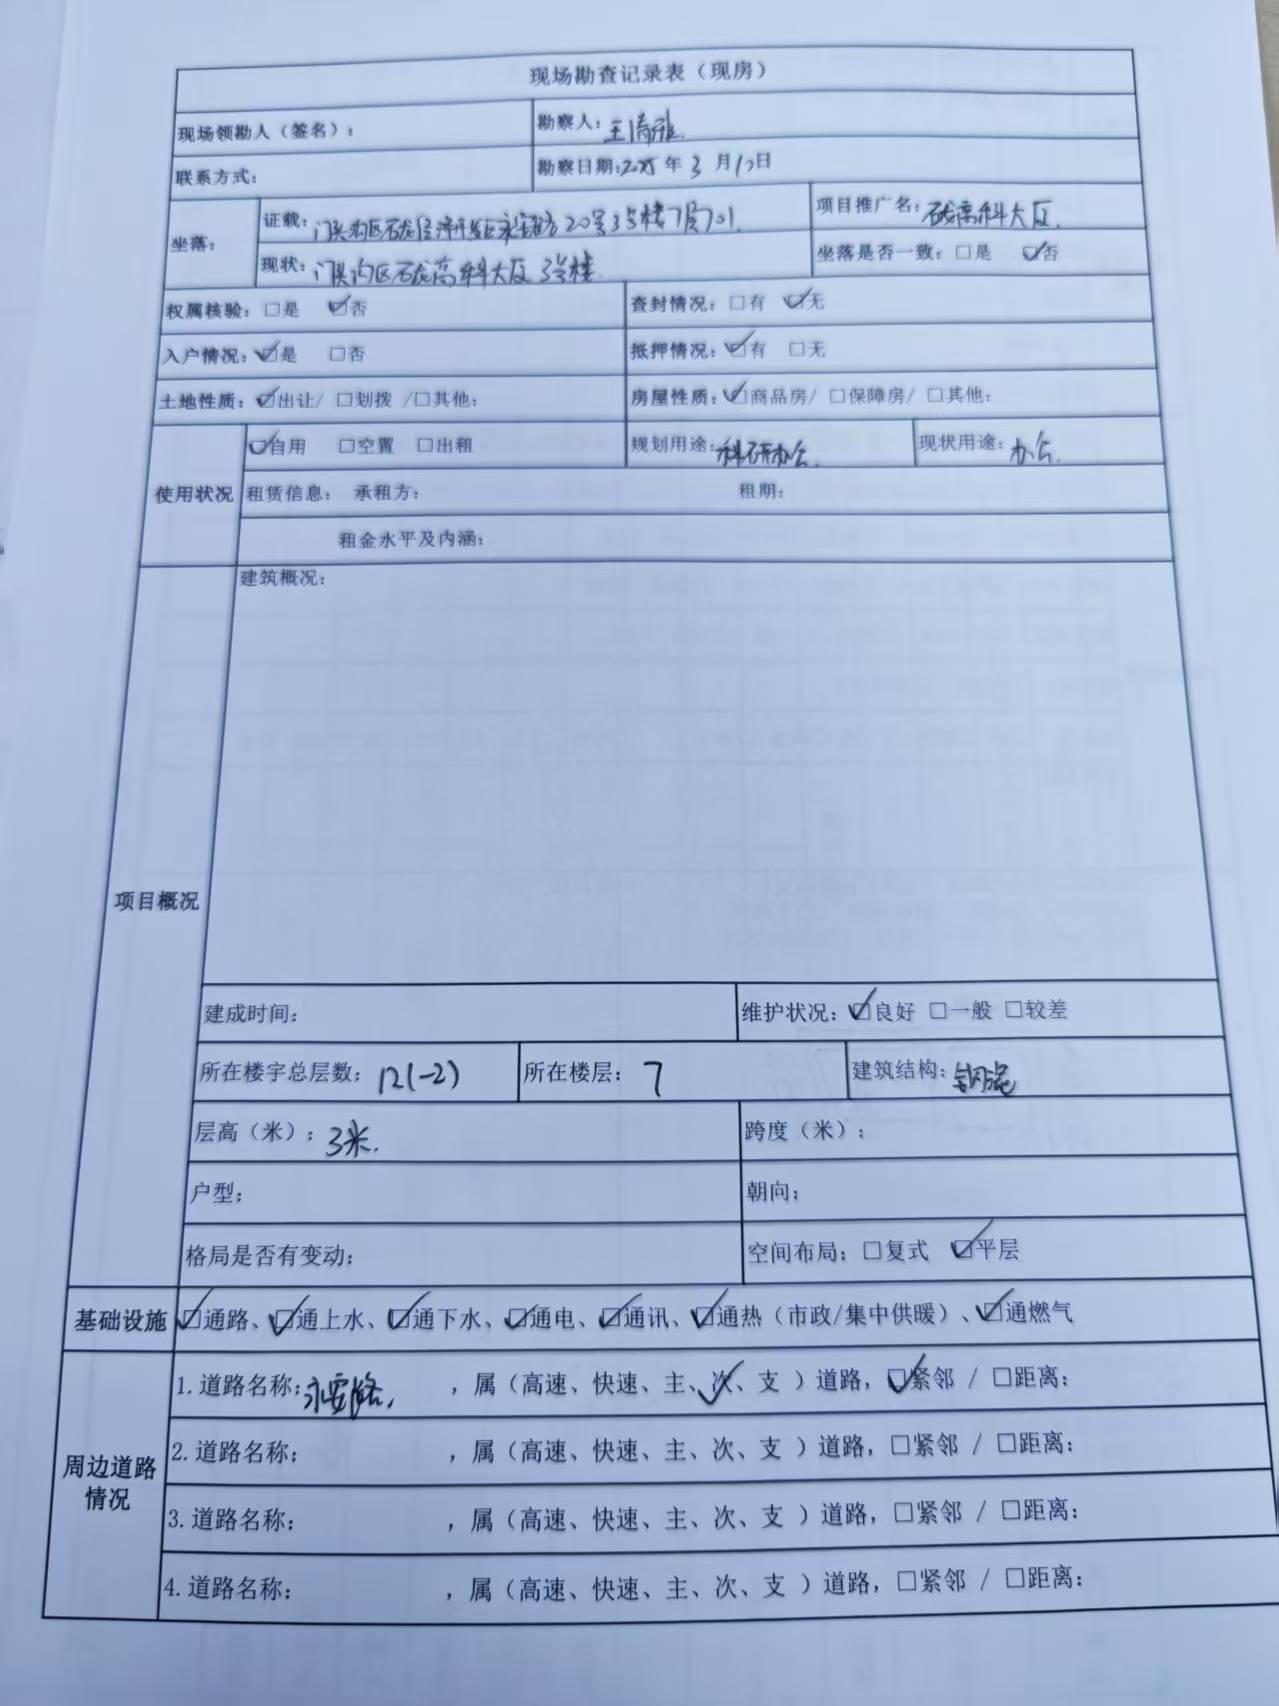 现场勘查记录表（现房）
现场领勘人（签名）： 勘察人：王清雅
联系方式： 勘察日期：2025年3月12日
坐落： 证载：门头沟区石龙经济开发区永安路20号3号楼7层701. 项目推广名：石龙高科大厦.
现状：门头沟区石龙高科大厦3号楼. 坐落是否一致：□是 ☑否
权属核验：□是 ☑否 查封情况：□有 ☑无
入户情况：☑是 □否 抵押情况：☑有 □无
土地性质：☑出让/ □划拨 /□其他： 房屋性质：☑商品房/ □保障房/ □其他：
使用状况 ☑自用 □空置 □出租 规划用途：科研办公. 现状用途：办公.
租赁信息： 承租方： 租期：
租金水平及内涵：
项目概况 建筑概况：
建成时间： 维护状况：☑良好 □一般 □较差
所在楼宇总层数：12(-2) 所在楼层：7 建筑结构：钢混
层高（米）：3米. 跨度（米）：
户型： 朝向：
格局是否有变动： 空间布局：□复式 ☑平层
基础设施 ☑通路、☑通上水、☑通下水、☑通电、☑通讯、☑通热（市政/集中供暖）、☑通燃气
周边道路情况 1.道路名称：永安路， ，属（高速、快速、主、次✓、支 ）道路，☑紧邻 / □距离：
2.道路名称： ，属（高速、快速、主、次、支 ）道路，□紧邻 / □距离：
3.道路名称： ，属（高速、快速、主、次、支 ）道路，□紧邻 / □距离：
4.道路名称： ，属（高速、快速、主、次、支 ）道路，□紧邻 / □距离：